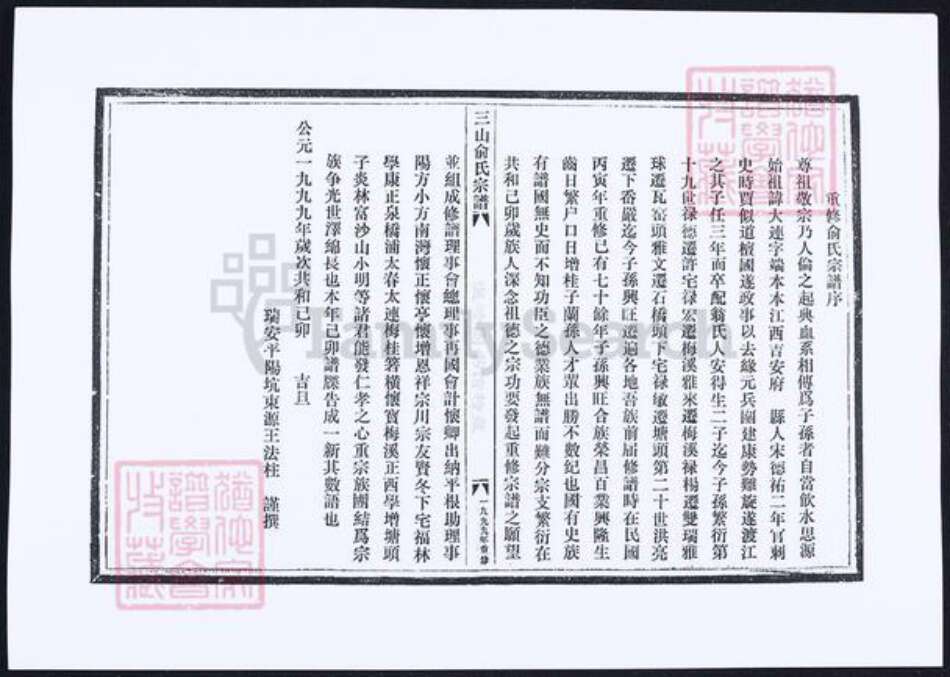 重修俞氏宗譜序
尊祖敬宗乃人倫之起典血系相傳爲子孫者自當飲水思源
始祖諱大連字端本本江西吉安府 縣人宋德祐二年官刺
史時賈似道擅國遂政事以去緣元兵圍建康勢難旋遂渡江
之其子任三年而卒配翁氏人安得生二子迄今子孫繁衍第
十九世禄德遷許宅禄宏遷梅溪雅來遷梅溪禄楊遷雙瑞雅
球遷瓦窑頭雅文遷石橋頭下宅禄敏遷塘頭第二十世洪亮
遷下岙嚴迄今子孫興旺遷遍各地吾族前届修譜時在民國
丙寅年重修已有七十餘年子孫興旺合族榮昌百業興隆生
齒日繁户口日增桂子蘭孫人才輩出勝不數紀也國有史族
有譜國無史而不知功臣之德業族無譜而難分宗支繁衍在
共和己卯歲族人深念祖德之宗功要發起重修宗譜之願望
三山俞氏宗譜
一九九九年重修
並組成修譜理事會總理事再國會計懷卿出納平根助理事
陽方小方南灣懷正懷亭懷增恩祥宗川宗友賢冬下宅福林
學康正泉橋浦太春太連梅桂箬横懷寶梅溪正西學增塘頭
子炎林富沙山小明等諸君能發仁孝之心重宗族團結爲宗
族争光世澤綿長也本年己卯譜牒告成一新其數語也
公元一九九九年歲次共和己卯 吉旦
瑞安平陽坑東源王法柱 謹撰
FamilySearch